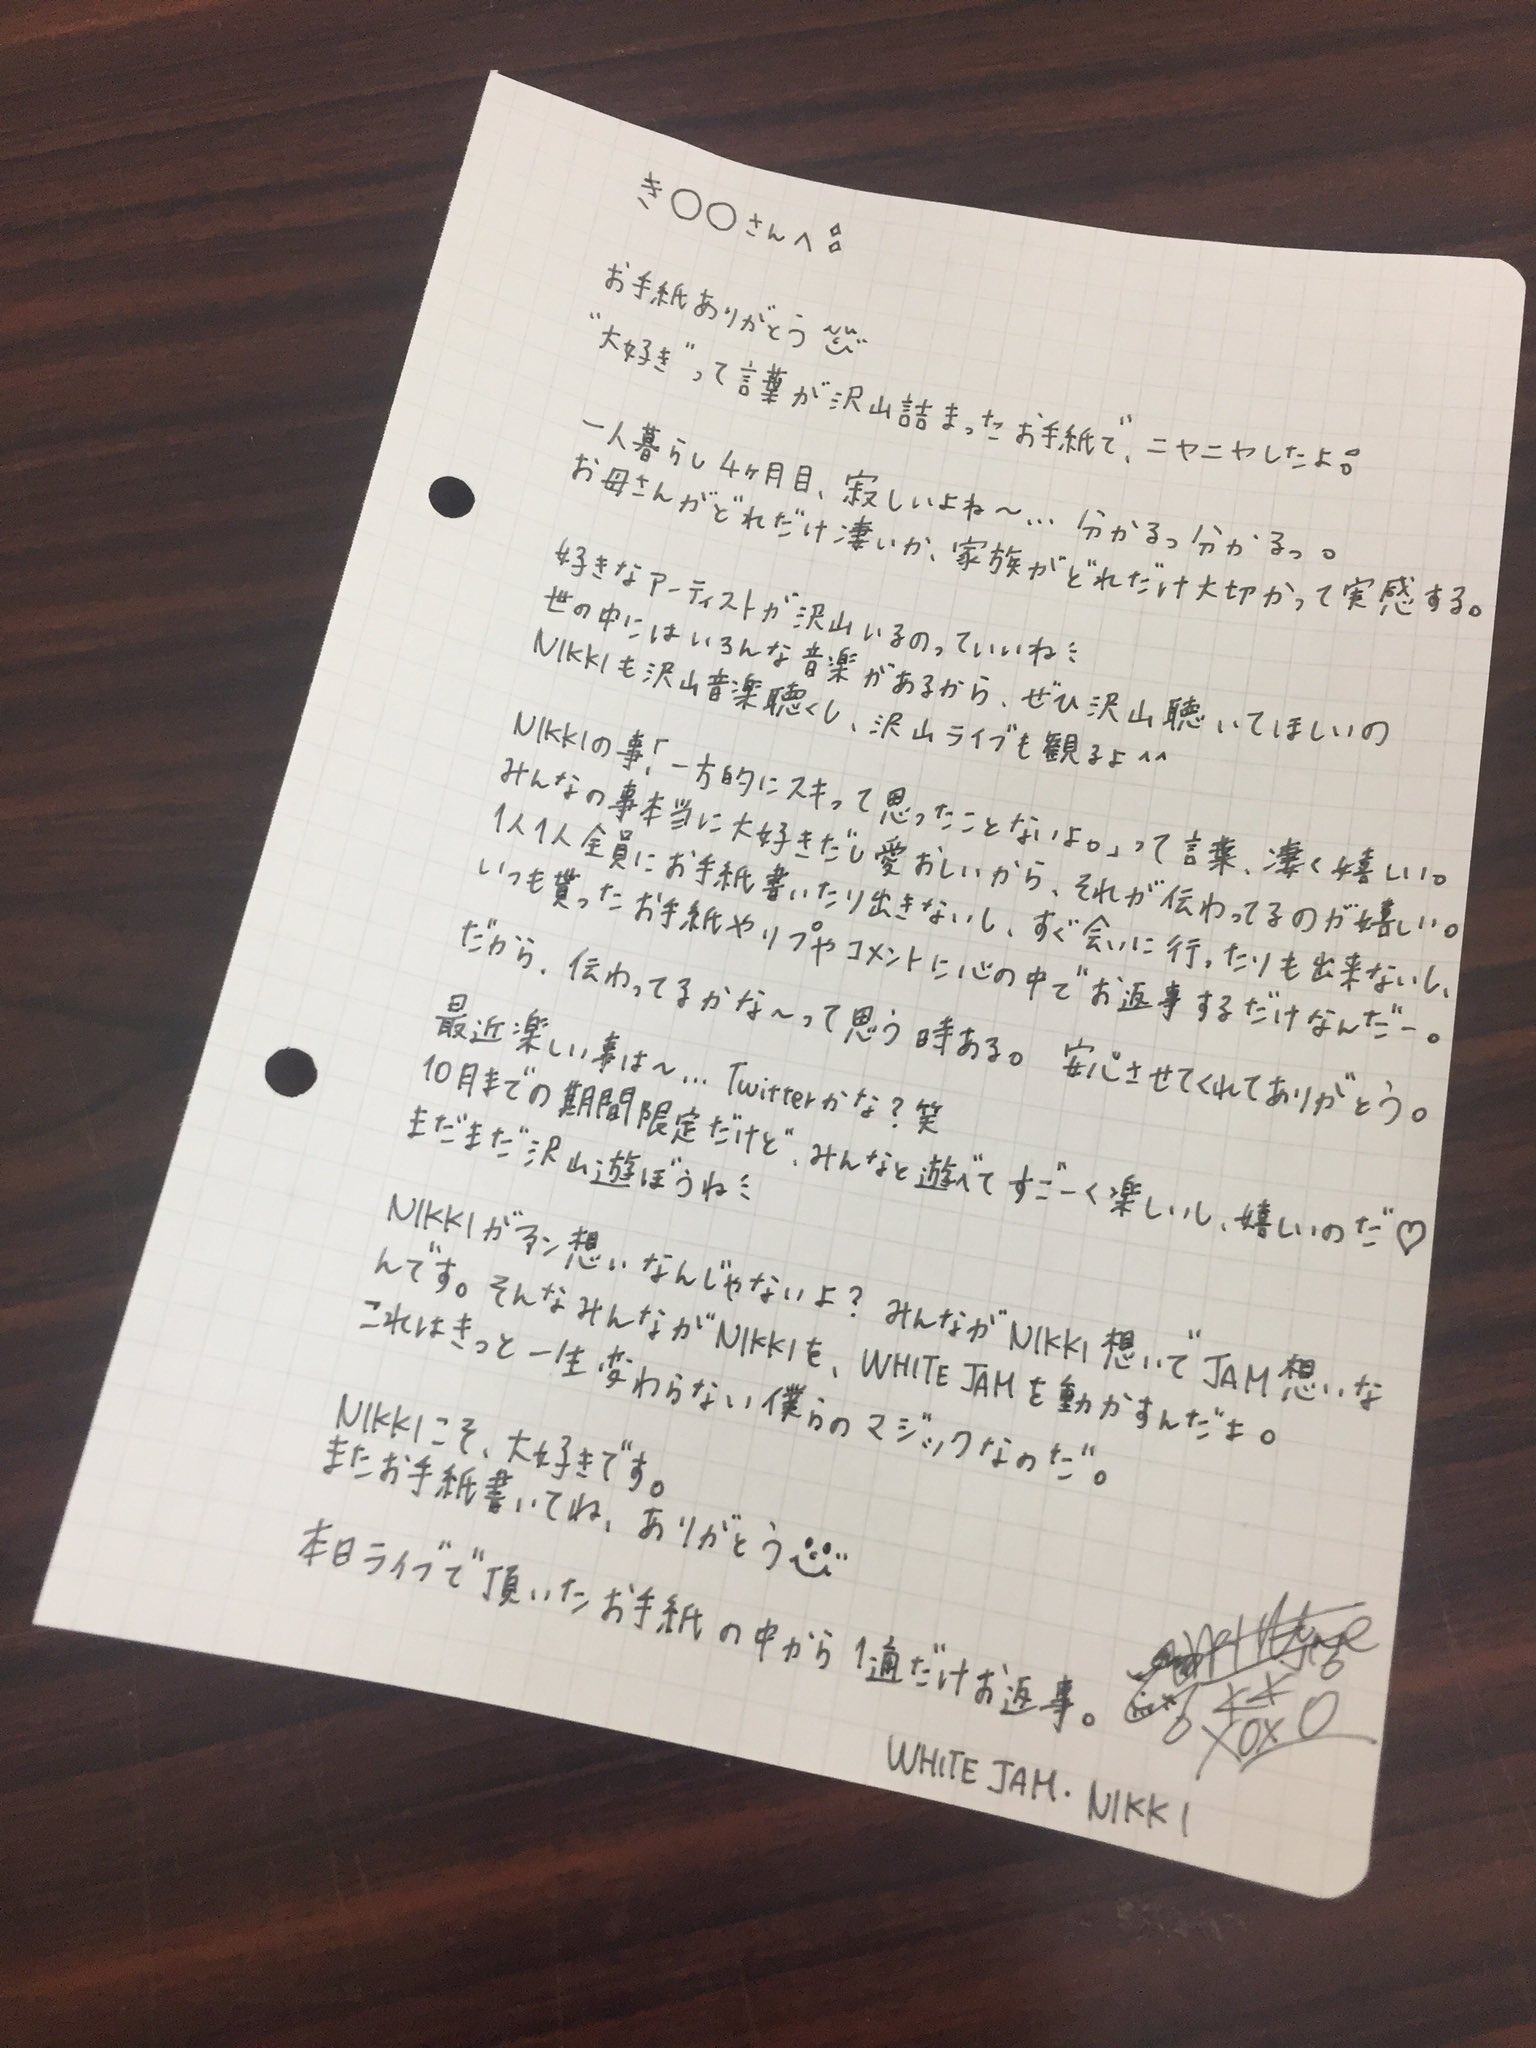 き〇〇さんへ
お手紙ありがとう
"大好き"って言葉が沢山詰まったお手紙で、ニヤニヤしたよ
一人暮らし4ヶ月目、寂しいよね〜… 分かるっ分かるっ。
お母さんがどれだけ凄いか、家族がどれだけ大切かって実感する。
好きなアーティストが沢山いるのっていいね
世の中にはいろんな音楽があるから、ぜひ沢山聴いてほしいの
NIKKIも沢山音楽聴くし、沢山ライブも観るよ^^
NIKKIの事「一方的にスキって思ったことないよ。」って言葉、凄く嬉しい。
みんなの事本当に大好きだし愛おしいから、それが伝わってるのが嬉しい。
1人1人全員にお手紙書いたり出きないし、すぐ会いに行ったりも出来ないし、
いつも貰ったお手紙やリプやコメントに心の中でお返事するだけなんだー。
だから、伝わってるかな〜って思う時ある。 安心させてくれてありがとう。
最近楽しい事は〜… Twitterかな?笑
10月までの期間限定だけど、みんなと遊べてすごーく楽しいし、嬉しいのだ♡
まだまだ沢山遊ぼうね
NIKKIがファン想いなんじゃないよ? みんながNIKKI想いでJAM想いな
んです。そんなみんながNIKKIを、WHITE JAMを動かすんだよ。
これはきっと一生変わらない僕らのマジックなのだ。
NIKKIこそ、大好きです。
またお手紙書いてね、ありがとう
本日ライブで頂いたお手紙の中から1通だけお返事。
XOXO
WHITE JAM. NIKKI